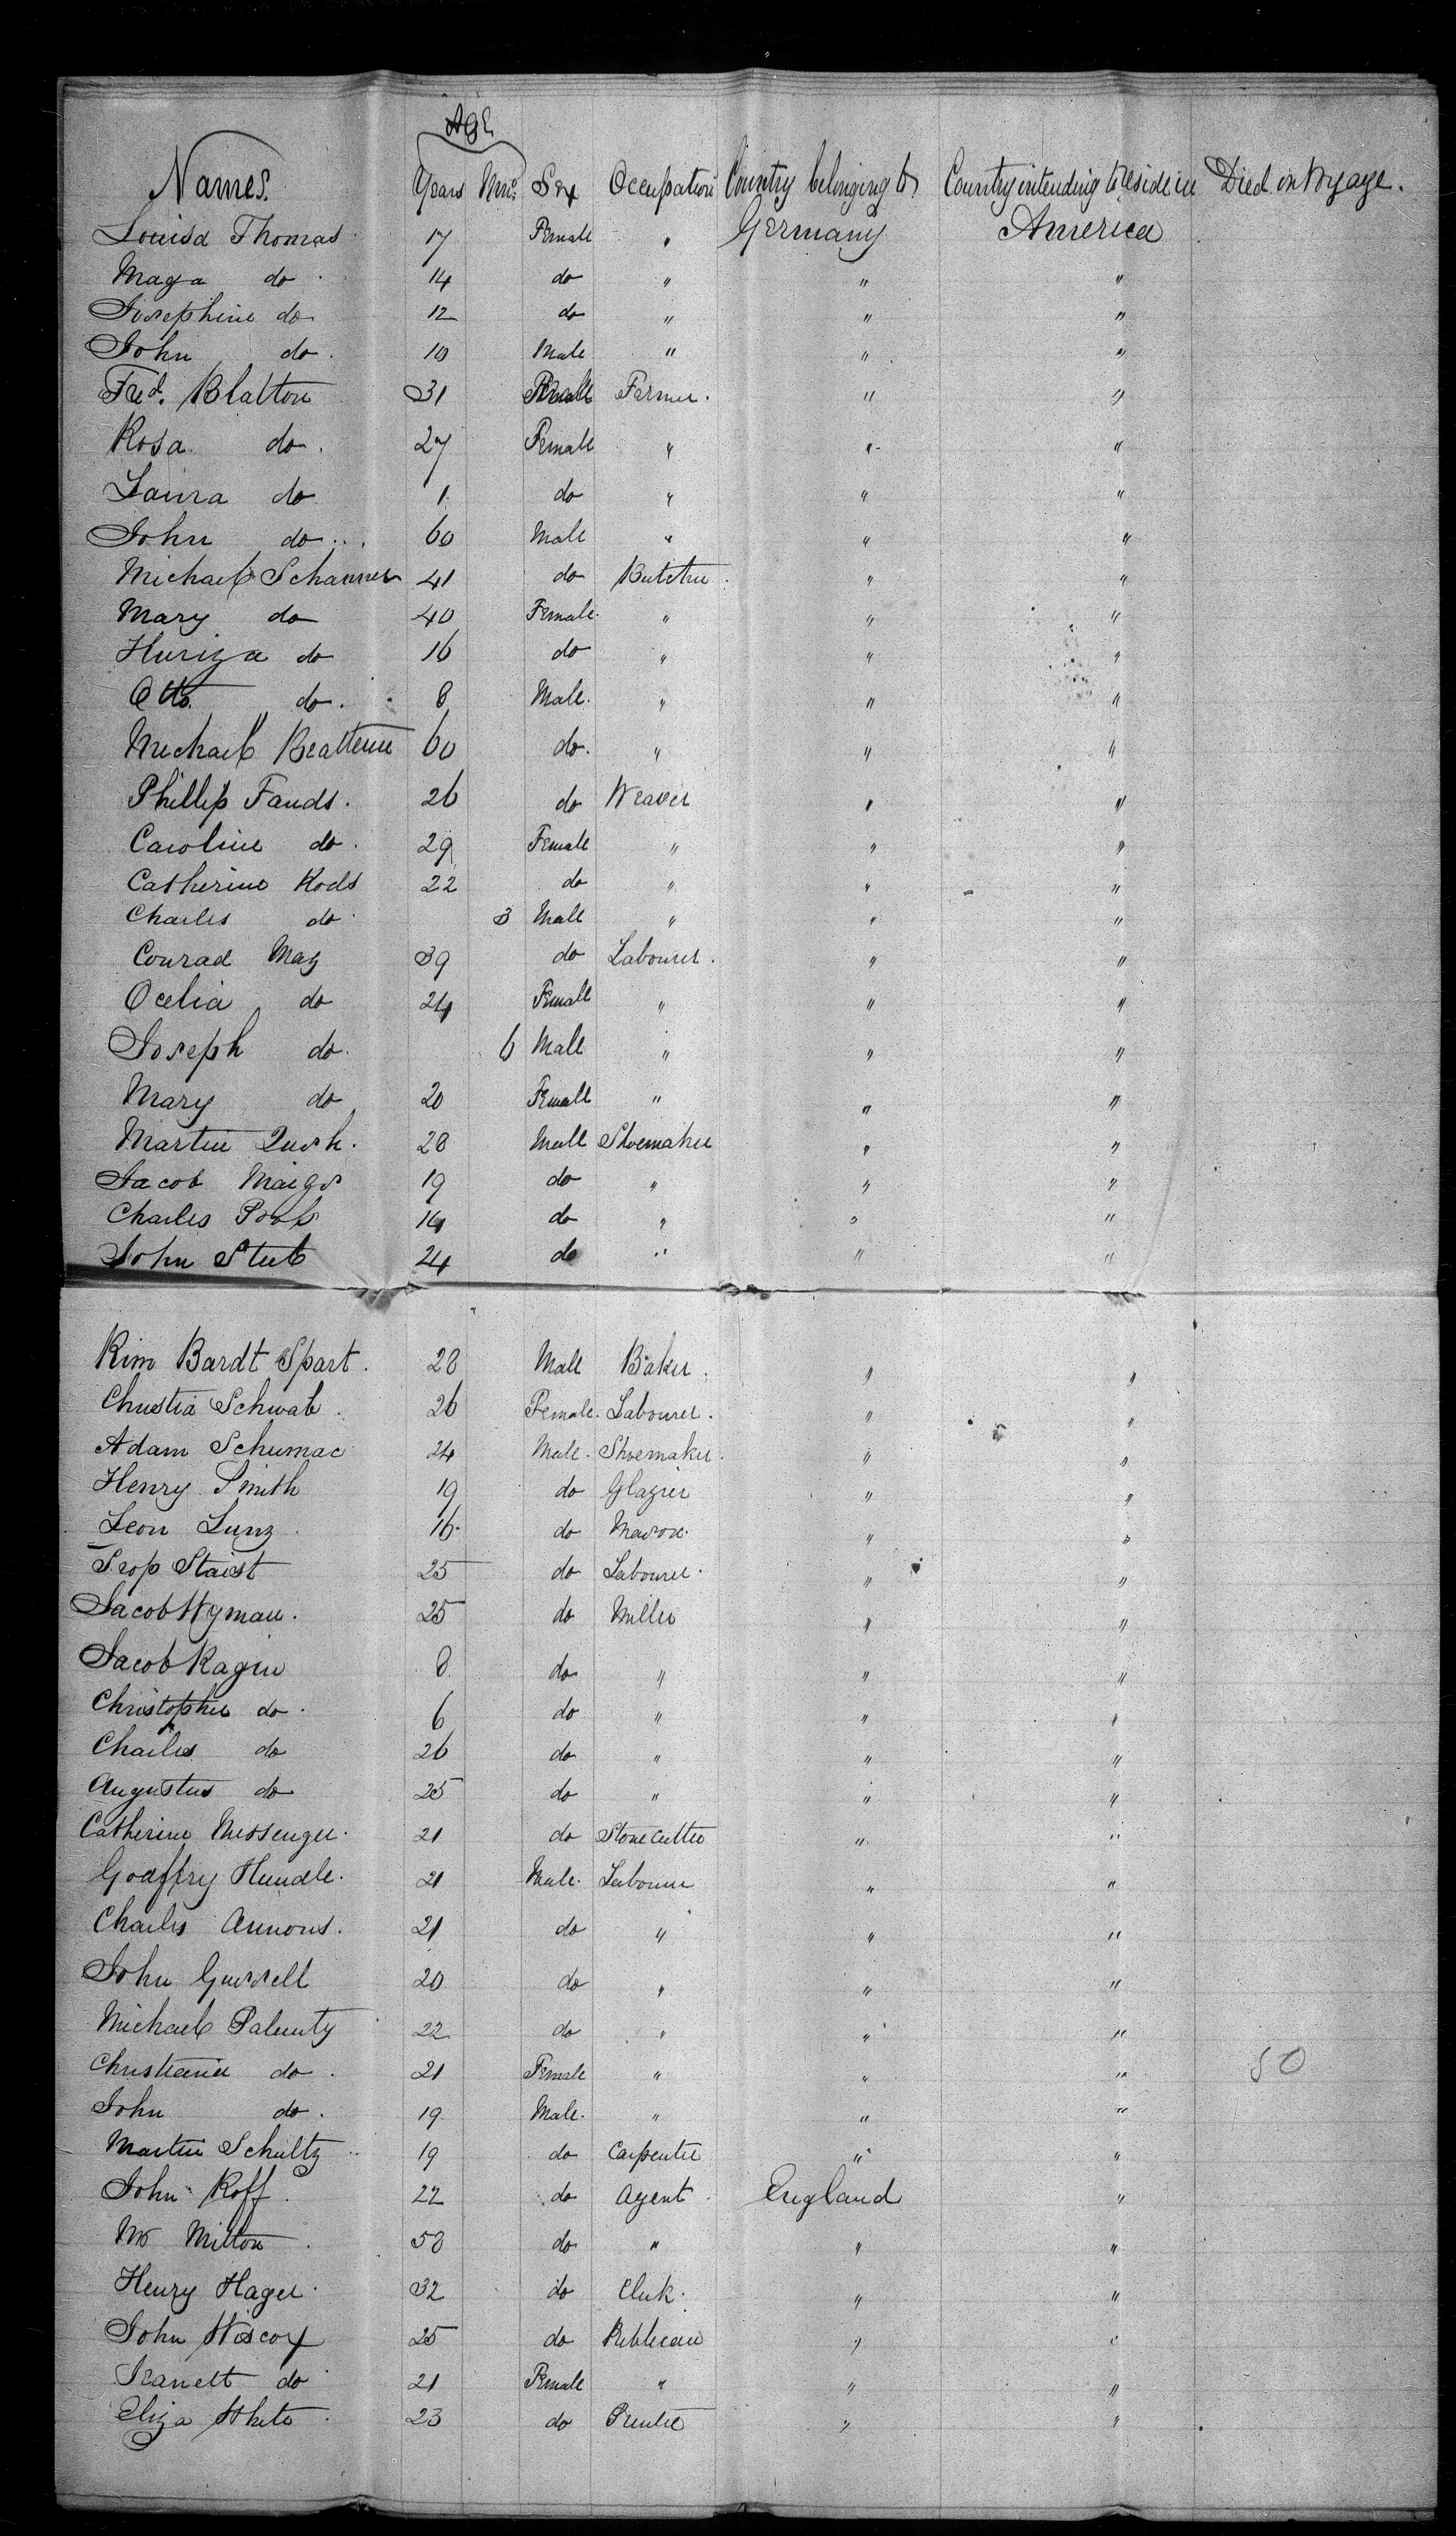 Age
Names. Years Mos. Sex Occupation Country belonging to Country intending to reside in Died on Voyage.
Louisa Thomas 17 Female " Germany America
Maga do 14 do " " "
Josephine do 12 do " " "
John do. 10 Male " " "
Fred. Blatton 31 Farmer. " "
Rosa do. 27 Female " " "
Laura do 1 do " " "
John do 60 Male " " "
Michael Schanner 41 do Butcher " "
Mary do 40 Female. " " "
do 16 do " " "
Otto do. 8 Male. " " "
Michael 60 do. " " "
Phillip Fauds. 26 do Weaver " "
Caroline do. 29 Female " " "
Catherine Rods 22 do " " "
Charles do 3 Male " " "
Conrad May 39 do Labourer. " "
Ocelia do 24 Female " " "
Joseph do. 6 Male " " "
Mary do 20 Female " " "
Martin 28 Male Shoemaker " "
Jacob 19 do " " "
Charles do " " "
John 24 do " " "
Rim Bardt Spart. 28 Male Baker. " "
Christia Schwab. 26 Female. Labourer. " "
Adam Schumac 24 Male. Shoemaker. " "
Henry Smith 19 do Glazier " "
Leon Lunz 16. do Mason. " "
Staist 25 do Labourer. " "
Jacob Hyman. 25 do Miller " "
Jacob Ragin 8 do " " "
Christopher do. 6 do " " "
Charles do 26 do " " "
Augustus do 25 do " " "
Catherine Messenger. 21 do Stone Cutter " "
Godffry Hundle. 21 Male. Labourer " "
Charles 21 do " " "
John 20 do " " "
Michael Palenty 22 do " " "
do. 21 Female " " " 50
John do. 19 Male. " " "
Martin Schultz 19 do Carpenter " "
John Roff. 22 do Agent England "
Milton 50 do " " "
Henry Hager. 32 do Clerk. " "
John Hiscox 25 do Publican " "
Jeanett do 21 Female " " "
Eliza White. 23 do " "